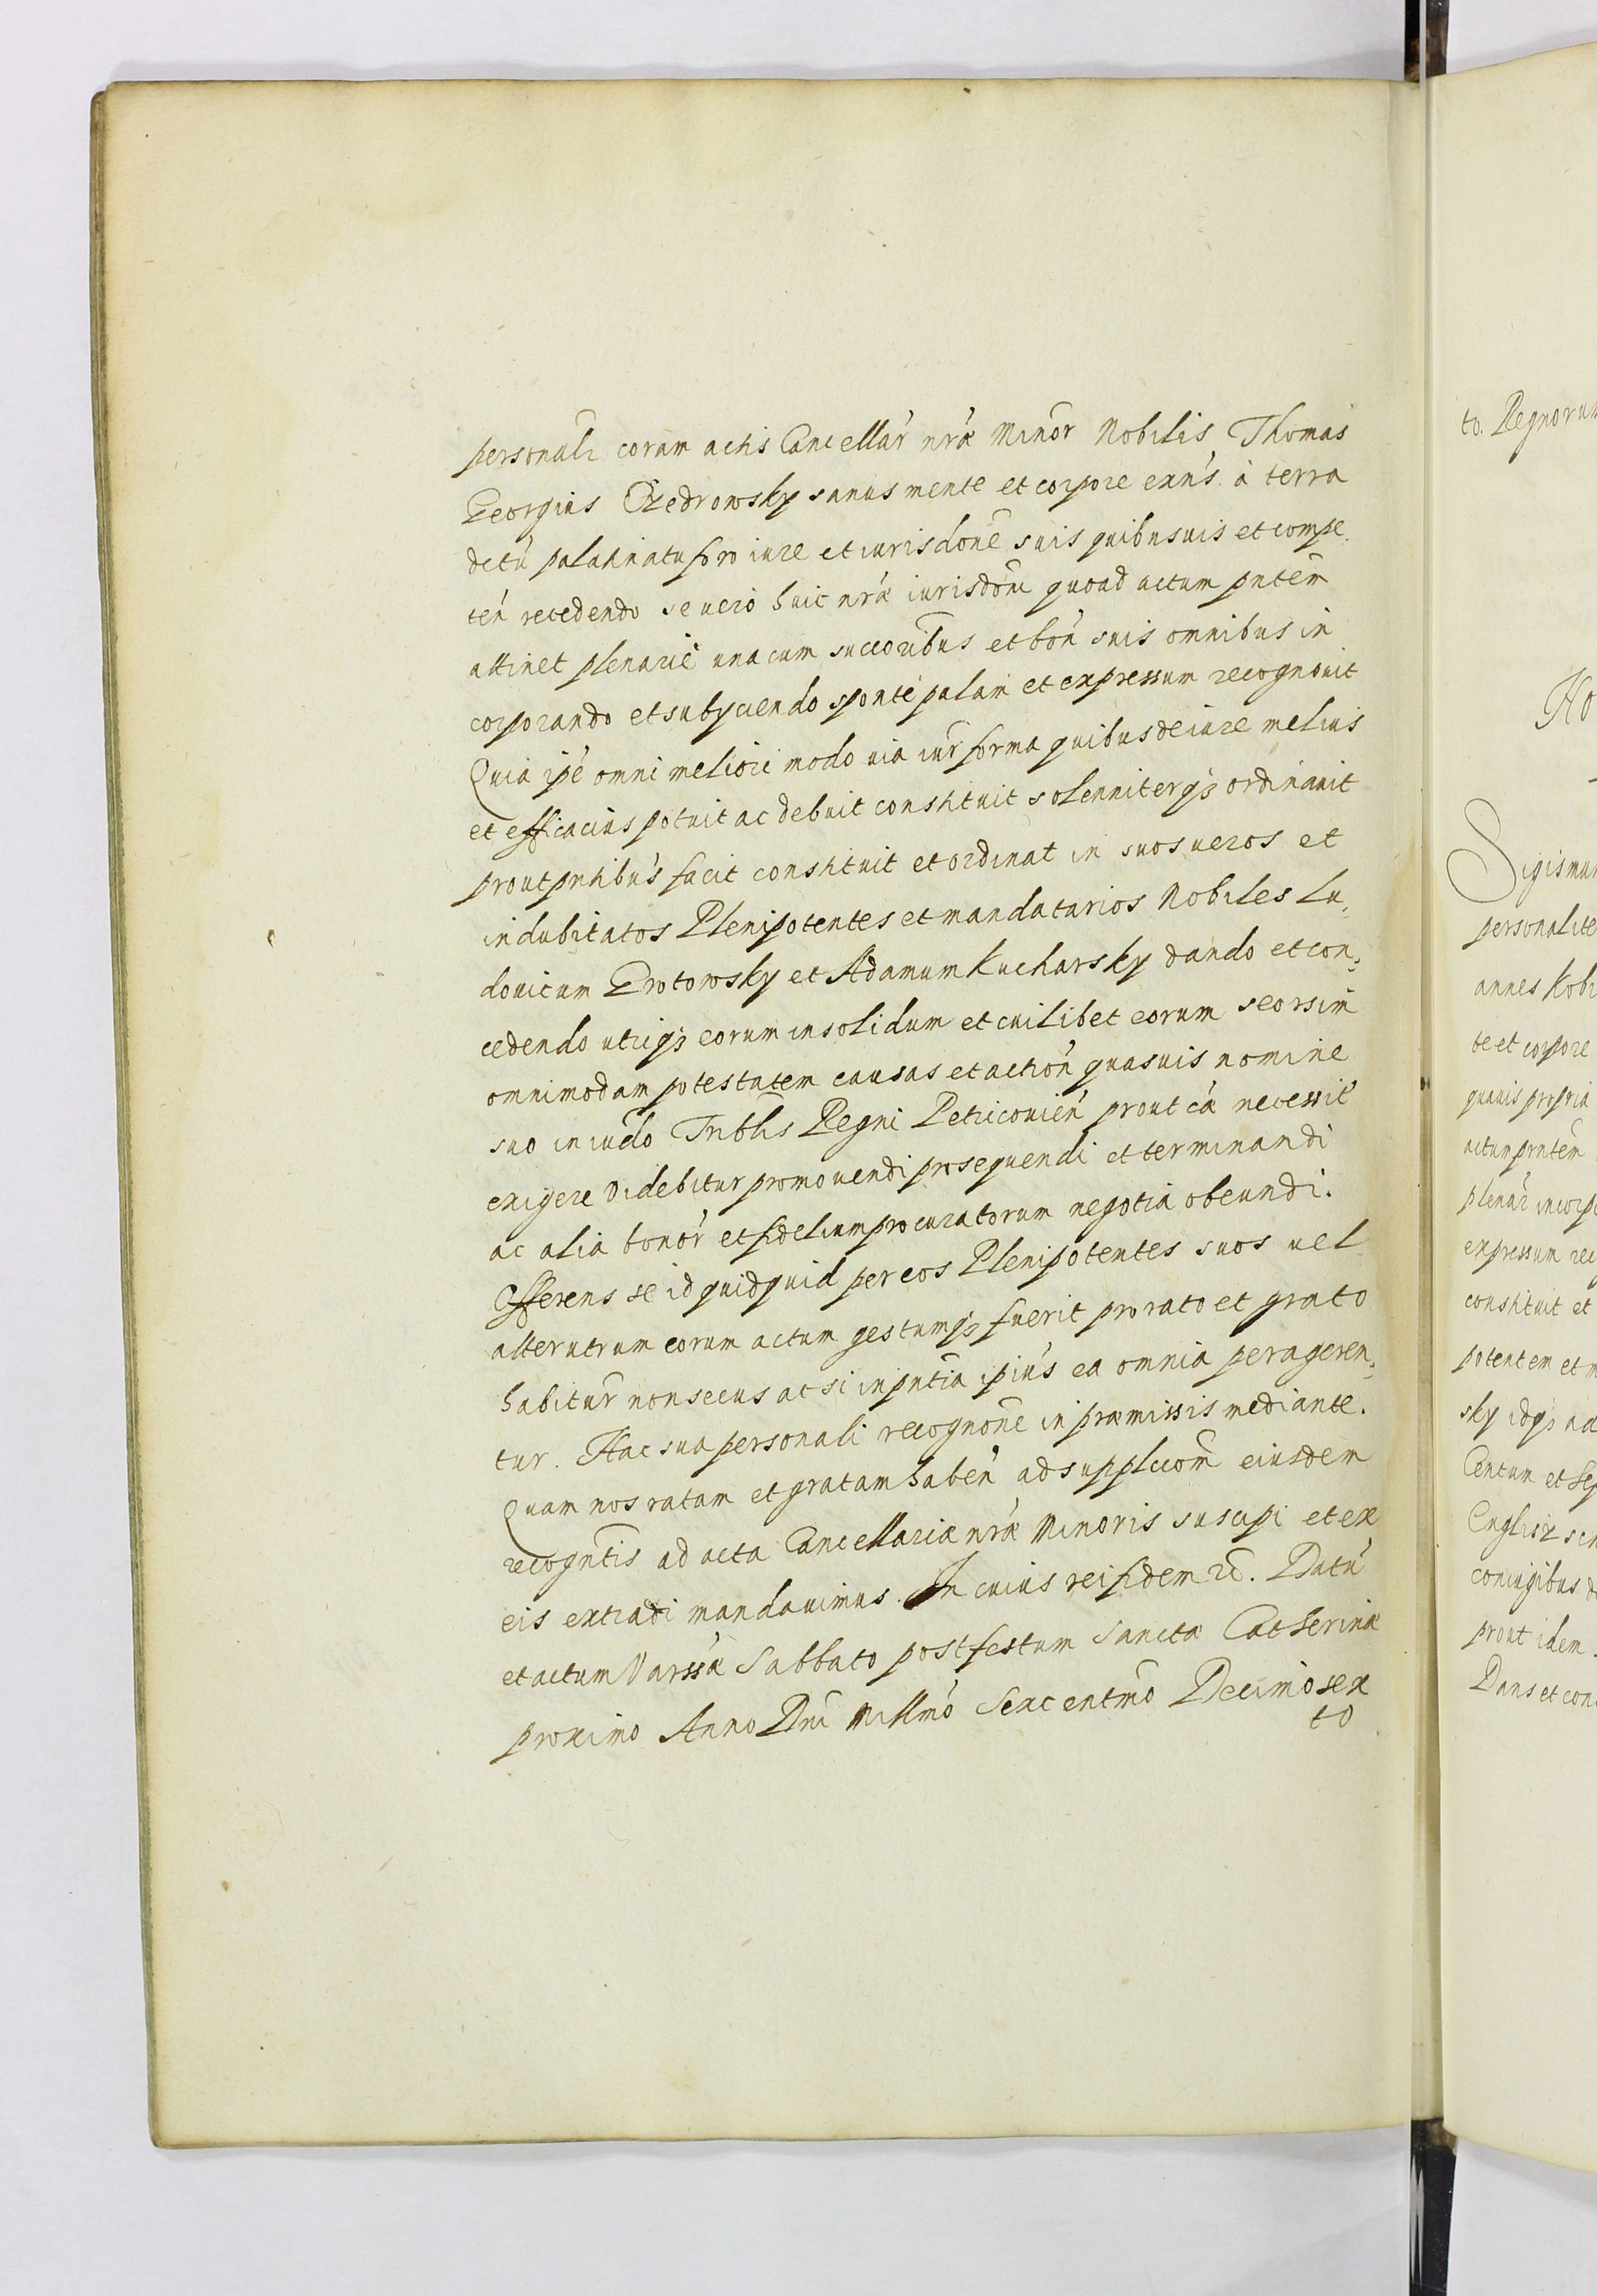 personalr coram actis Cancellar nræ Minor Nobilis Thomas
Georgius Czedrowsky sanus mente et corpore exns à terra
dctu palatinatu foro iure et iurisdone suis quibusuis et compe
ten recedendo se uero huic nræ iurisdoni quoad actum pntem
attinet plenarie una cum succoribus et bon suis omnibus in
corporando et subyciendo sponte palam et expressum recognouit
Quia ipe omni meliori modo uia iur forma quibus de iure melius
et efficacius potuit ac debuit constituit solenniterq3 ordinauit
prout pntibus facit constituit et ordinat in suos ueros et
indubitatos Plenipotentes et mandatarios Nobiles Lu
douicum Grotowsky et Adamum Kucharsky dando et con
cedendo utriq3 eorum in solidum et cuilibet eorum seorsim
omnimodam potestatem causas et action quasuis nomine
suo in iudo Tribtis Regni Petricouien prout ea necessit
exigere videbitur promouendi prosequendi et terminandi
ac alia bonor et fidelium procuratorum negotia obeundi.
Offerens se id quidquid per eos Plenipotentes suos uel
alterutrum eorum actum gestumq3 fuerit pro rato et grato
habitur non secus ac si in pntia ipius ea omnia perageren
tur. Hac sua personali recognone in præmissis mediante.
Quam nos ratam et gratam haben ad supplicom eiusdem
recogntis ad acta Cancellariæ nræ Minoris suscipi et ex
eis extradi mandauimus. In cuius rei fidem Datu
et actum Varssæ Sabbato post festum Sanctæ Catherinæ
proximo Anno Dni Millmo Sexcentmo Decimo sex
to
to. Regnorum
Ho
Sigismun
personalite
annes Kobi
te et corpore
quauis propria
actum pntem
plenar incorp
expressum rec
constituit et
potentem et m
sky idq3 ad
Centum et Sep
Englisz
coniugibus d
prout idem
Dans et con